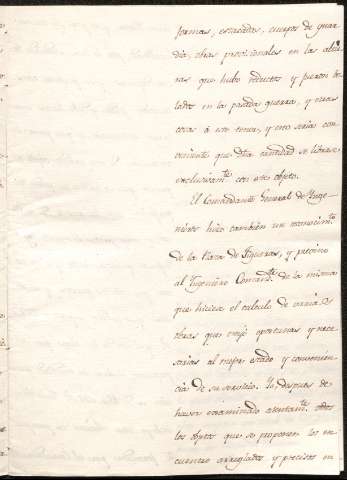 formas, estacadas, cuerpos de guar-
dia, obras provisionales en las altu-
ras que hubo reductos y fueron vo-
lados en la pasada guerra, y otras
cosas á este tenor, y era sería con-
veniente que dha cantidad se librase
exclusivamte. con este objeto.
El Comandante General de Inge-
nieros hizo también un reconocimto.
de la Plaza de Figueras, y previno
al Ingeniero Comandte. de la misma
que hiciera el calculo de varias
obras que creyó oportunas y nece-
sarias al mejor estado y convenien-
cia de su servicio. Yo, despues de
haver examinado atentamte. todos
los objetos que se proponen los en-
cuentro arreglados y precisos en